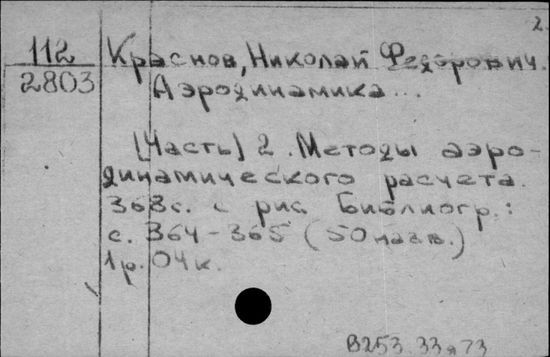 2.
112
2803
Краснов, Николай Федорович.
Аэродинамика...
[Часть] 2. Методы аэро-
динамического расчета.
368с. с рис. Библиогр.:
с. 364-365 (50 назв.)
1р. 04к.
В253.33я73